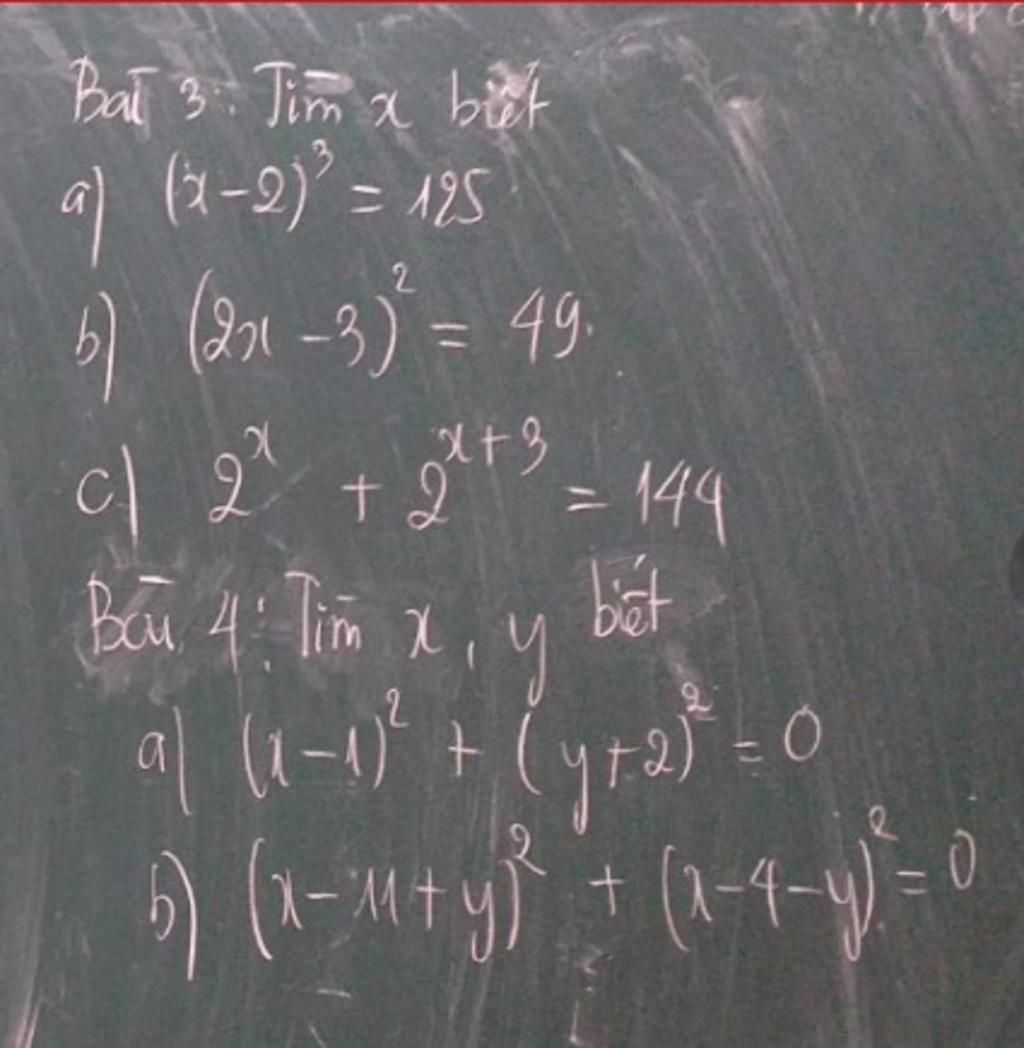 Bài 3: Tìm x biết
a) (x-2)³ = 125
b) (2x-3)² = 49.
c) 2^x + 2^(x+3) = 144
Bài 4: Tìm x, y biết
a) (x-1)² + (y+2)² = 0
b) (x-11+y)² + (x-4-y)² = 0